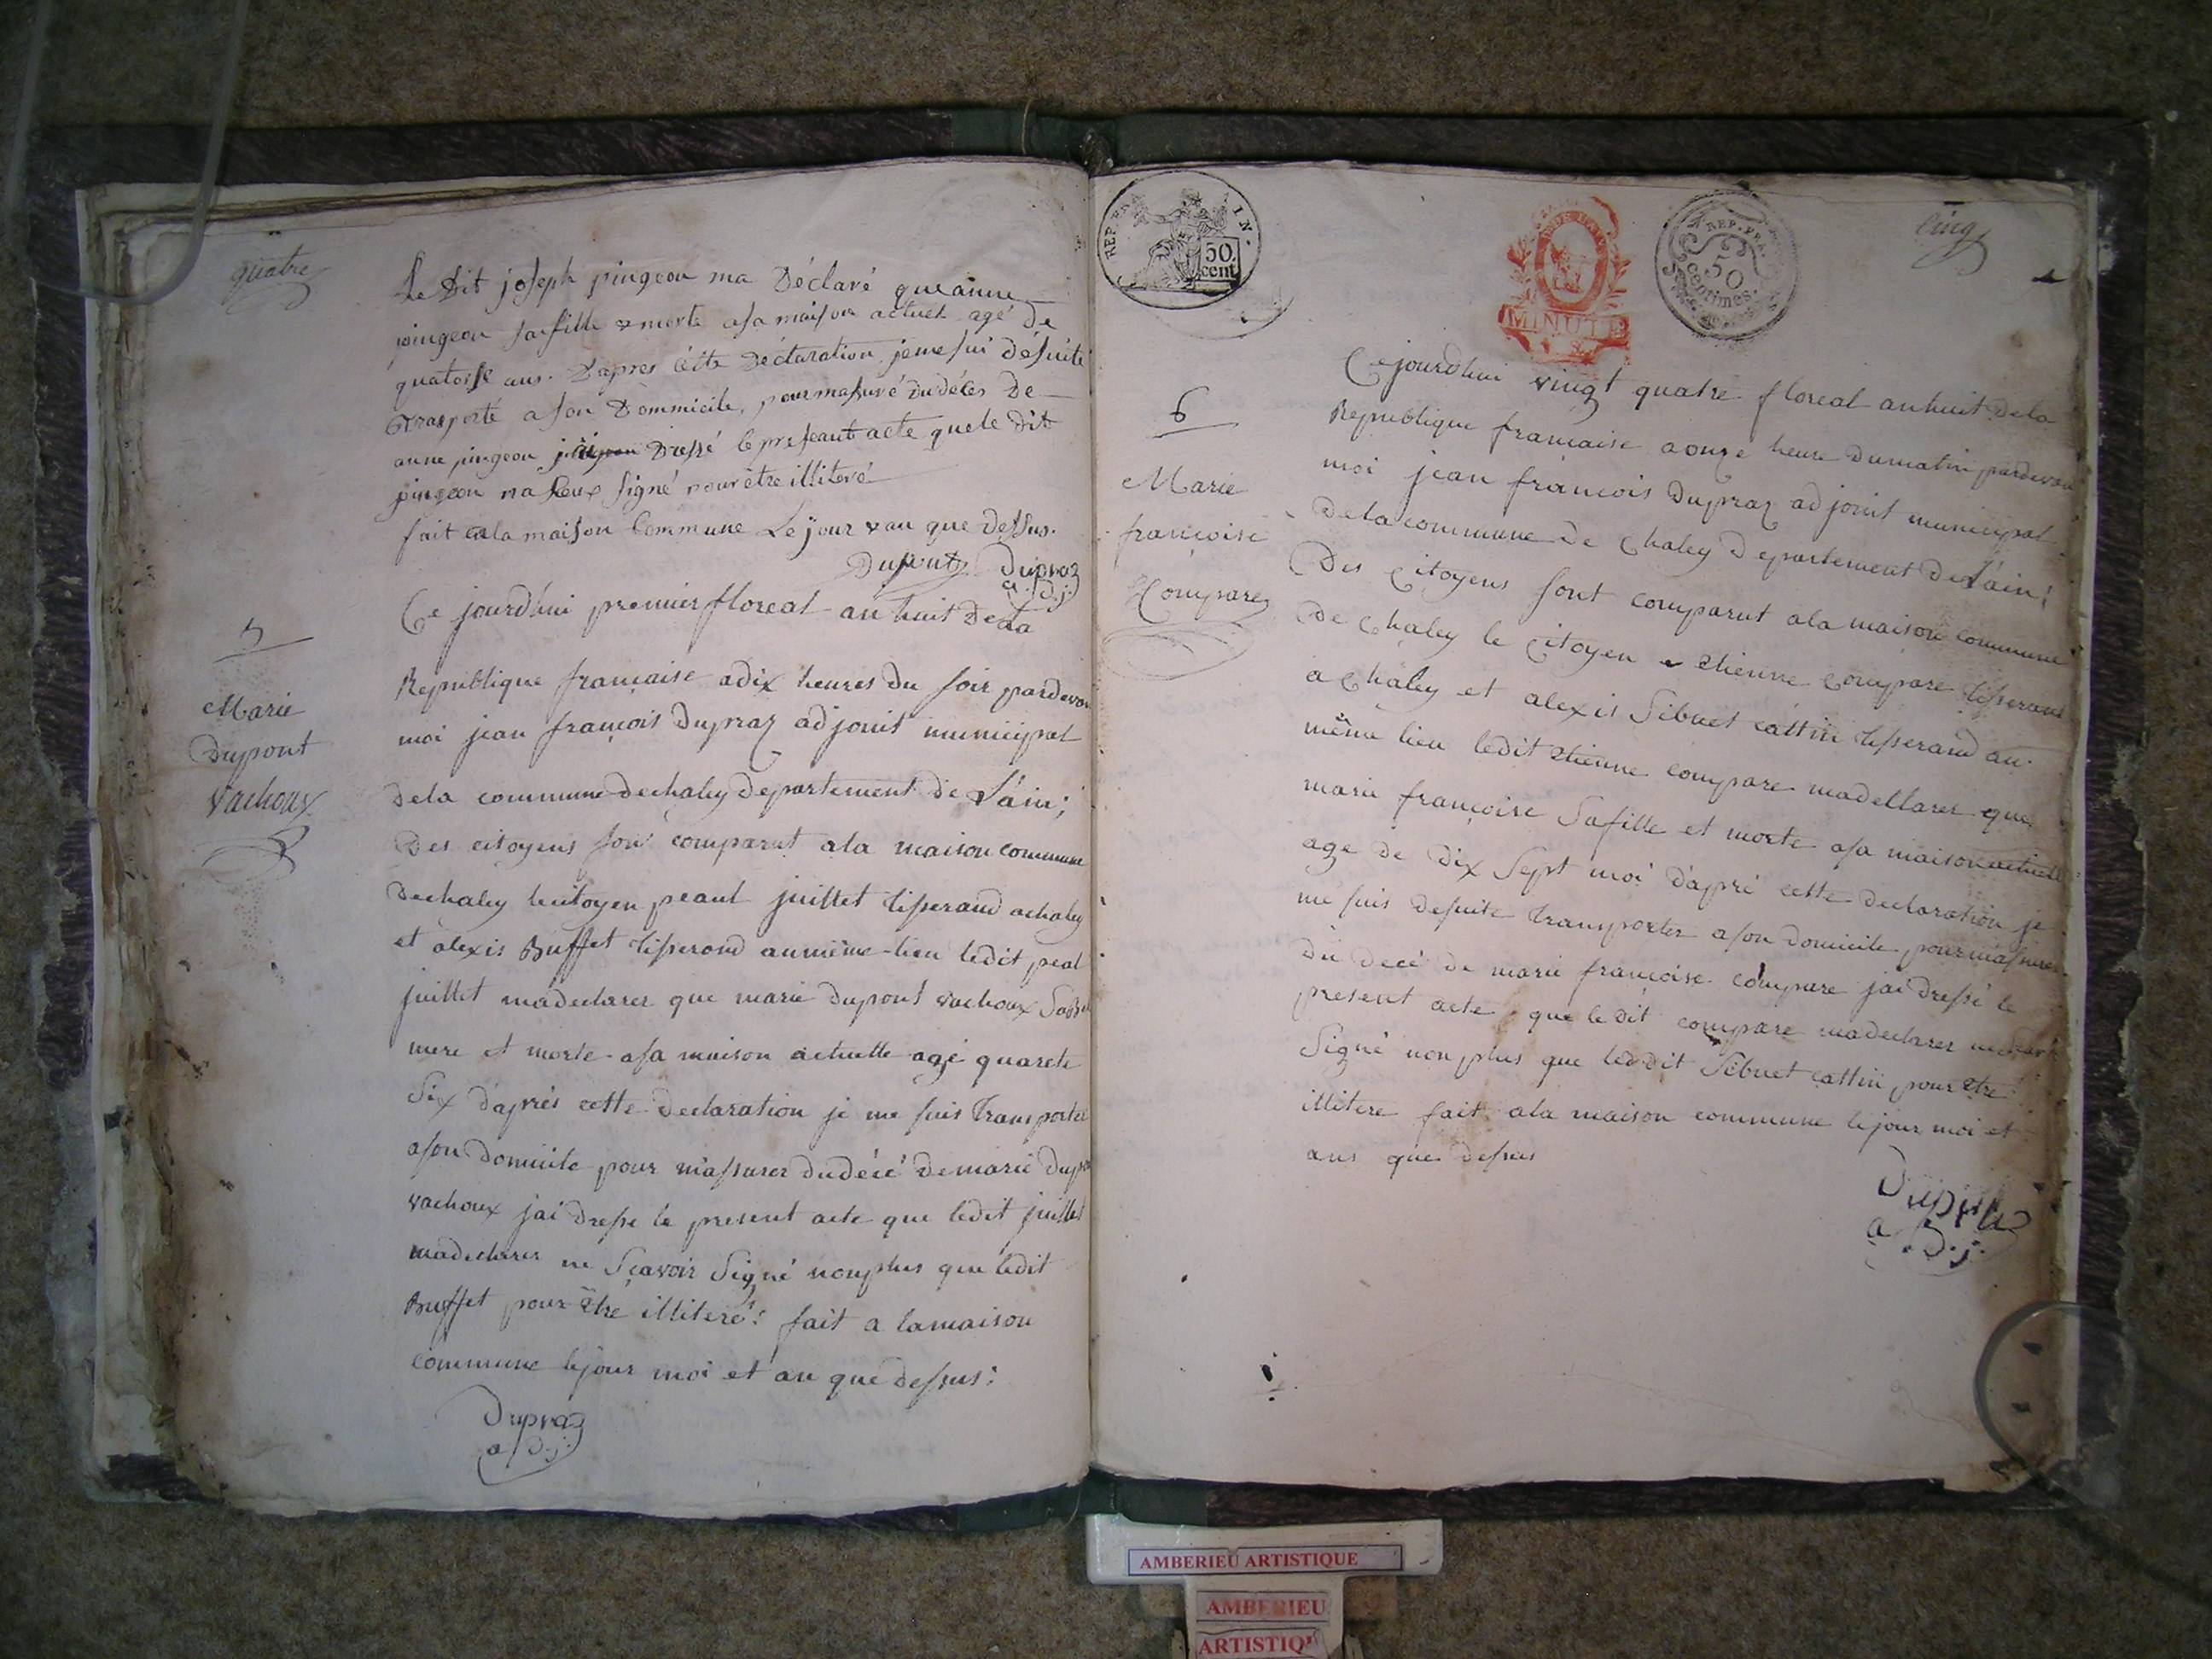 quatre
Le Dit joseph pingeon ma Déclaré que anne
pingeon sa fille & morte asa maison actuel agé de
quatorse ans. D'apres cette Déclaration je me sui désuite
trasporté a son Dommicile, pour masuré du décés De
anne pingeon j'ai Dressé le preseant acte que le dit
pingeon na seux signé pour être illiteré
fait ala maison Commune Le jour & an que Dessus.
Dupont Dupraz
a D.j.
5
Marie
Dupont
vachoux
Ce jourd'hui premier floreal an huit De la
Republique française a dix heures Du soir pardevon
moi jean françois Dupraz adjoint municipal
De la commune de chaley Departement de L'ain;
Des citoyens son comparut ala maison commune
De chaley le citoyen peaul juillet tisserand a chaley
et alexis Buffet tisserand au même lieu ledit peal
juillet ma declarer que marie dupont vachoux Sa Bel
mere et morte asa maison actuelle agé quarete
Six d'aprés cette Declaration je me suis transporter
a son Domicile pour m'assurer du décé de marie Dupo
vachoux jai Dresse le present acte que ledit juillet
ma declarer ne Sçavoir Signé non plus que ledit
Buffet pour être illiteré: fait a la maison
commune le jour moi et an que dessus:
Dupraz
a D.j.
REP. FRA
IN.
50
cent
MINUTE
REP. FRA.
50
centimes.
cinq
6
Marie
françoise
Compare
Ce jourdhui vingt quatre floreal an huit de la
Republique française a onze heure du matin pardevan
moi jean françois Dupraz adjoint municipal
De la commune De Chaley Departement de L'ain;
Des Citoyens sont comparut ala maison commune
De Chaley le Citoyen etienne Compare tisserand
a Chaley et alexis Sibuet cattin tisserand au
même lieu ledit etienne compare ma dellarer que
marie françoise Sa fille et morte asa maison actuelle
age de Dix Sept moi d'apré cette declaration je
me suis desuite transporter a son domicile pour m'assurer
du decé de marie françoise compare jai Dressé le
present acte que le dit compare ma declarer ne Scavoir
Signé non plus que ledit Sibuet cattin pour être
illitere fait ala maison commune le jour moi et
ans que dessus
Dupraz
a D.j.
AMBERIEU ARTISTIQUE
AMBERIEU
ARTISTIQU